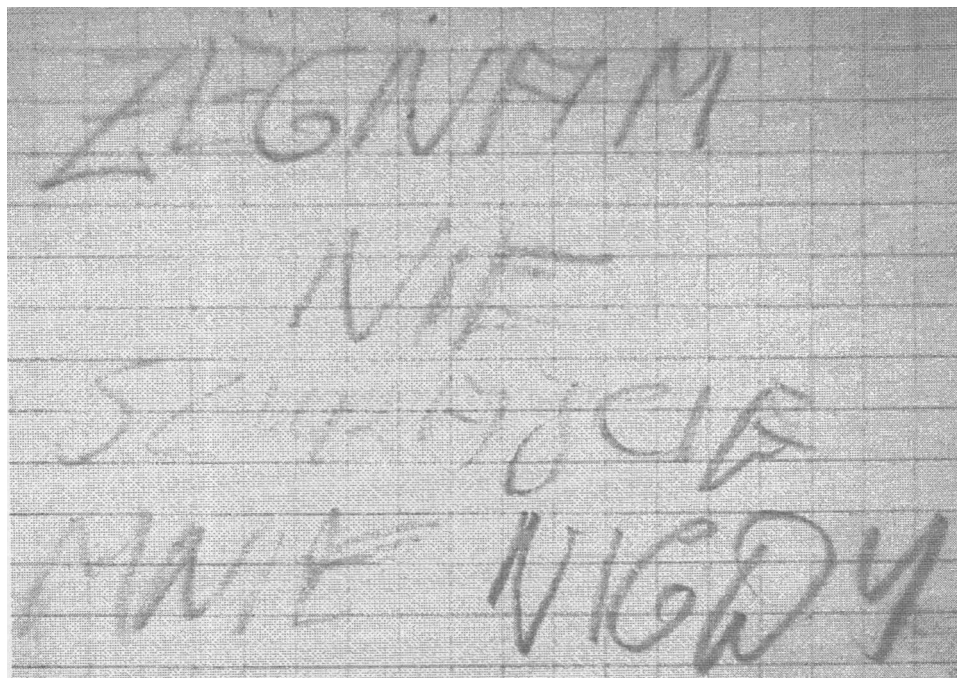 ŻEGNAM
NIE
SZUKAJCIE
MNIE NIGDY